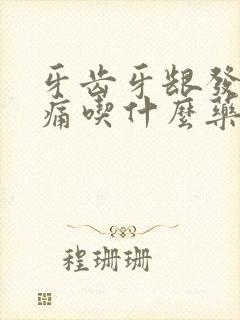 牙齿牙龈發
痛喫什麼藥
程珊珊